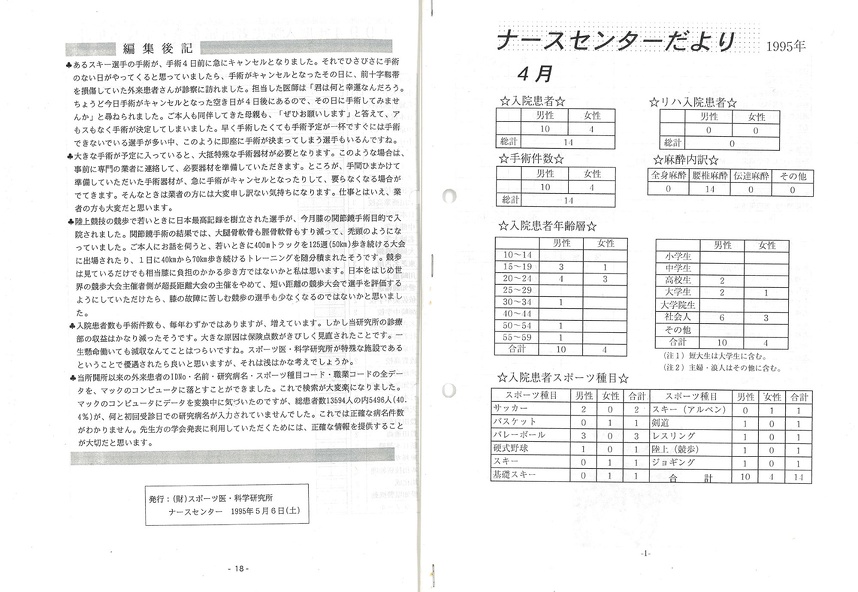 編集後記
♣あるスキー選手の手術が、手術4日前に急にキャンセルとなりました。それでひさびさに手術
のない日がやってくると思っていましたら、手術がキャンセルとなったその日に、前十字靱帯
を損傷していた外来患者さんが診察に訪れました。担当した医師は「君は何と幸運なんだろう。
ちょうど今日手術がキャンセルとなった空き日が4日後にあるので、その日に手術してみませ
んか」と尋ねられました。ご本人も同伴してきた母親も、「ぜひお願いします」と答えて、ア
もスもなく手術が決定してしまいました。早く手術したくても手術予定が一杯ですぐには手術
できないでいる選手が多い中、このように即座に手術が決まってしまう選手もいるんですね。
♣大きな手術が予定に入っていると、大抵特殊な手術器材が必要となります。このような場合は、
事前に専門の業者に連絡して、必要器材を準備していただきます。ところが、手間ひまかけて
準備していただいた手術器材が、急に手術がキャンセルとなったりして、要らなくなる場合が
でてきます。そんなときは業者の方には大変申し訳ない気持ちになります。仕事とはいえ、業
者の方も大変だと思います。
♣陸上競技の競歩で若いときに日本最高記録を樹立された選手が、今月膝の関節鏡手術目的で入
院されました。関節鏡手術の結果では、大腿骨軟骨も脛骨軟骨もすり減って、禿頭のようにな
っていました。ご本人にお話を伺うと、若いときに400mトラックを125週(50km)歩き続ける大会
に出場されたり、1日に40kmから70km歩き続けるトレーニングを随分積まれたそうです。競歩
は見ているだけでも相当膝に負担のかかる歩き方ではないかと私は思います。日本をはじめ世
界の競歩大会主催者側が超長距離大会の主催をやめて、短い距離の競歩大会で選手を評価する
ようにしていただけたら、膝の故障に苦しむ競歩の選手も少なくなるのではないかと思いまし
た。
♣入院患者数も手術件数も、毎年わずかではありますが、増えています。しかし当研究所の診療
部の収益はかなり減ったそうです。大きな原因は保険点数がきびしく見直されたことです。一
生懸命働いても減収なんてことはつらいですね。スポーツ医・科学研究所が特殊な施設である
ということで優遇されたら良いと思いますが、それは浅はかな考えでしょうか。
♣当所開所以来の外来患者のIDNo・名前・研究病名・スポーツ種目コード・職業コードの全デー
タを、マックのコンピュータに落とすことができました。これで検索が大変楽になりました。
マックのコンピュータにデータを変換中に気づいたのですが、総患者数13594人の内5496人(40.
4%)が、何と初回受診日での研究病名が入力されていませんでした。これでは正確な病名件数
がわかりません。先生方の学会発表に利用していただくためには、正確な情報を提供すること
が大切だと思います。
発行:(財)スポーツ医・科学研究所
ナースセンター 1995年5月6日(土)
- 18 -
ナースセンターだより 1995年
4月
☆入院患者☆
男性 女性
10 4
総計 14
☆リハ入院患者☆
男性 女性
0 0
総計 0
☆手術件数☆
男性 女性
10 4
総計 14
☆麻酔内訳☆
全身麻酔 腰椎麻酔 伝達麻酔 その他
0 14 0 0
☆入院患者年齢層☆
男性 女性
10~14
15~19 3 1
20~24 4 3
25~29
30~34 1
40~44
50~54 1
55~59 1
合計 10 4
男性 女性
小学生
中学生
高校生 2
大学生 2 1
大学院生
社会人 6 3
その他
合計 10 4
(注1)短大生は大学生に含む。
(注2)主婦・浪人はその他に含む。
☆入院患者スポーツ種目☆
スポーツ種目 男性 女性 合計 スポーツ種目 男性 女性 合計
サッカー 2 0 2 スキー(アルペン) 0 1 1
バスケット 0 1 1 剣道 1 0 1
バレーボール 3 0 3 レスリング 1 0 1
硬式野球 1 0 1 陸上(競歩) 1 0 1
スキー 0 1 1 ジョギング 1 0 1
基礎スキー 0 1 1 合計 10 4 14
-1-